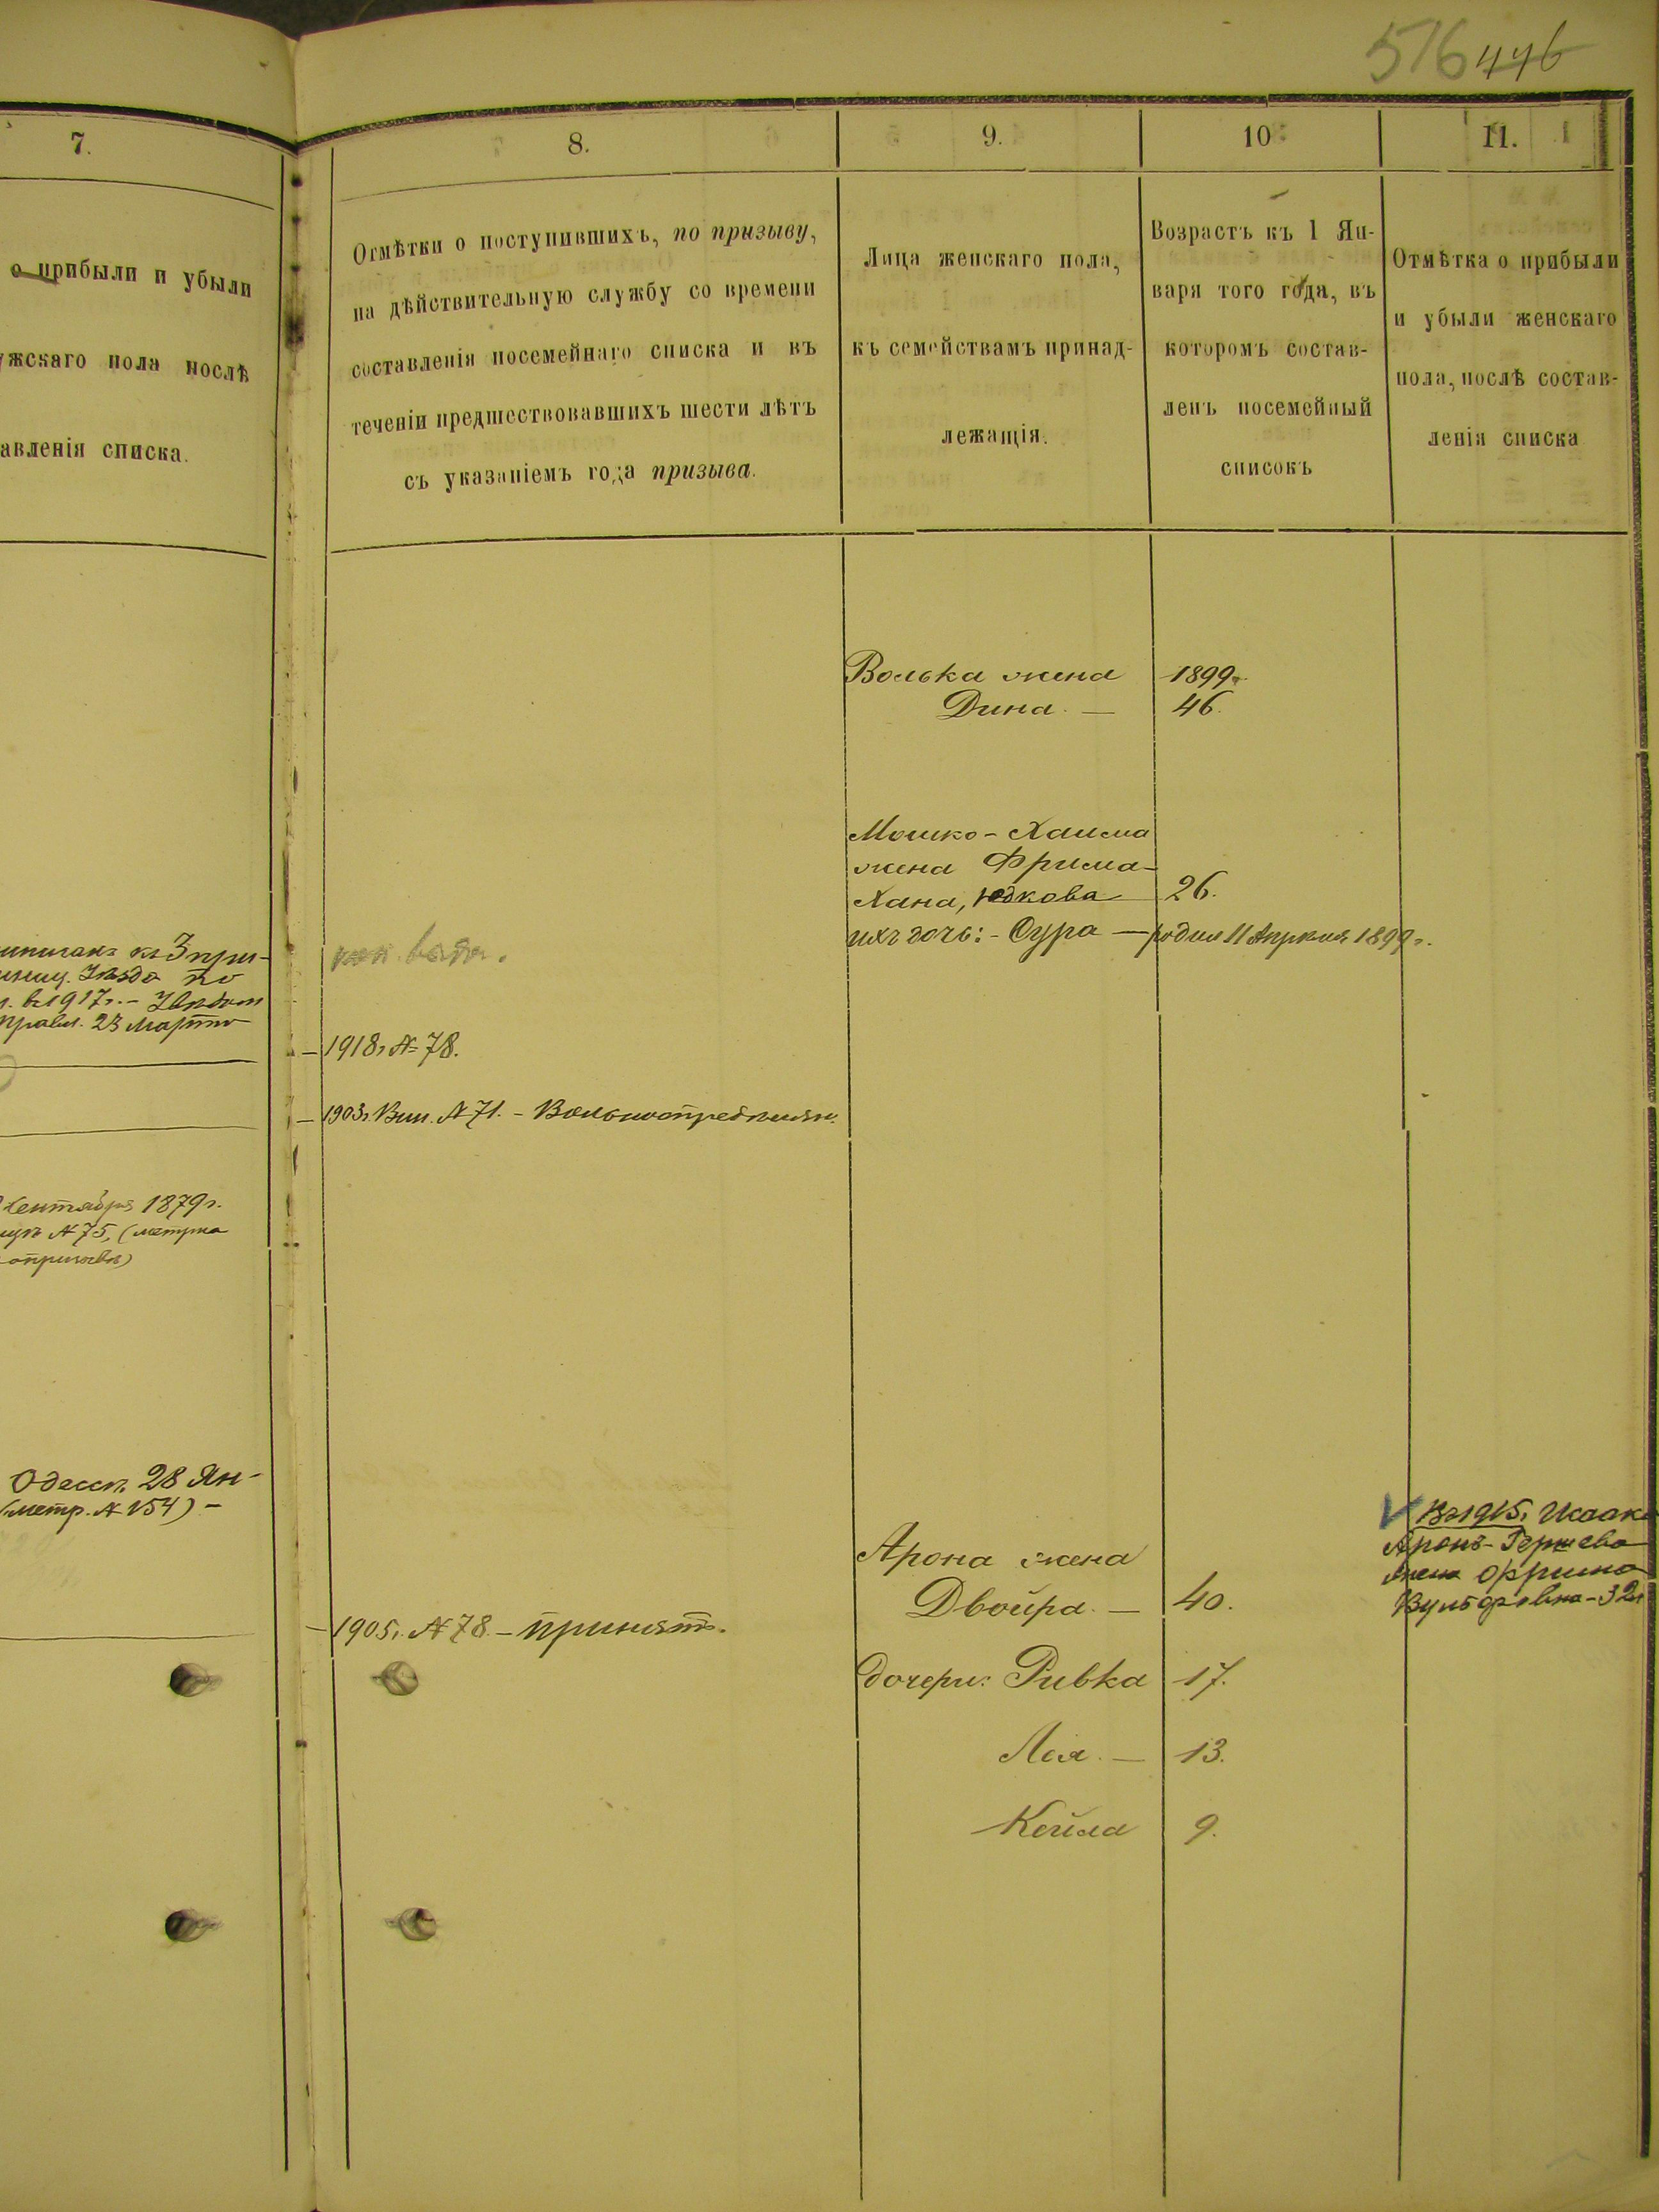 516 446
7.
8.
9.
10
11.
о прибыли и убыли
жскаго пола послѣ
авленія списка.
Отмѣтки о поступившихъ, по призыву,
на дѣйствительную службу со времени
составленія посемейнаго списка и въ
теченіи предшествовавшихъ шести лѣтъ
съ указаніемъ года призыва.
Лица женскаго пола,
къ семействамъ принад-
лежащія.
Возрастъ къ 1 Ян-
варя того года, въ
которомъ состав-
ленъ посемейный
списокъ
Отмѣтка о прибыли
и убыли женскаго
пола, послѣ состав-
ленія списка
Волька жена 1899г.
Дина. — 46.
Мошко-Хаима
жена Фрима-
Хана, Юдкова 26.
ихъ дочь: - Сура — родил 11 Апрѣля 1899г.
къ 3 при-
по
в 1917г. -
правл. 23 Марта
— 1918г № 78.
— 1903г. Вып. № 71. - Вольноопредѣлян.
Сентября 1879г.
№ 75, (метрика
о призывѣ)
Одессѣ 28 Ян-
(метр. № 154) -
— 1905г. № 78 - принятъ.
Арона жена
Двойра. — 40.
дочери: Ривка 17.
Лея. — 13.
Кейла 9.
V Въ 1915г. Исаака
Аронъ-Гершева
жена Фрима
Вульфовна - 32л